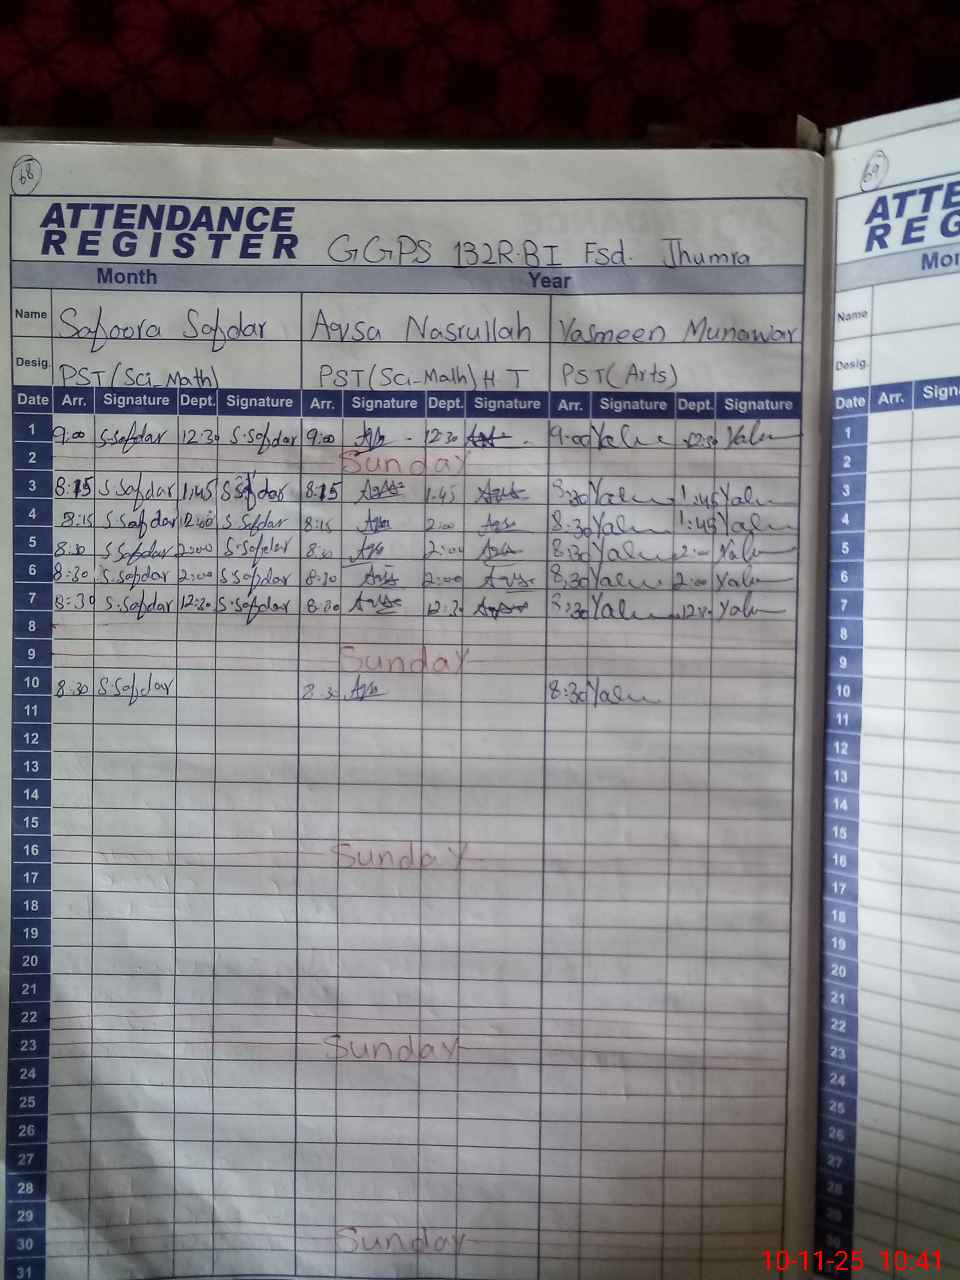 68
ATTENDANCE
REGISTER GGPS 132R.BI Fsd. Jhumra
Month Year
Name Safoora Safdar Aqsa Nasrullah Yasmeen Munawar
Desig. PST(Sci_Math) PST(Sci_Math) H T PST(Arts)
Date Arr. Signature Dept. Signature Arr. Signature Dept. Signature Arr. Signature Dept. Signature
1 9:00 S.Safdar 12:30 S.Safdar 9:00 12:30 9:00
2 Sunday
3 8:15 S.Safdar 1:45 S.Safdar 8:15 1:45 8:30 1:45
4 8:15 S.Safdar S.Safdar 8:15 2:00 8:30 1:45
5 8:30 S.Safdar 2:00 S.Safdar 8:30 2:00 8:30
6 8:30 S.Safdar 2:00 S.Safdar 8:30 2:00 8:30 2:00
7 8:30 S.Safdar 12:30 S.Safdar 8:30 12:30 8:30
8
9 Sunday
10 8:30 S.Safdar 8:30 8:30
11
12
13
14
15
16 Sunday
17
18
19
20
21
22
23 Sunday
24
25
26
27
28
29
30 Sunday
31
69
ATTE
REG
Mon
Name
Desig.
Date Arr. Sign
1
2
3
4
5
6
7
8
9
10
11
12
13
14
15
16
17
18
19
20
21
22
23
24
25
26
27
28
29
30
10-11-25 10:41